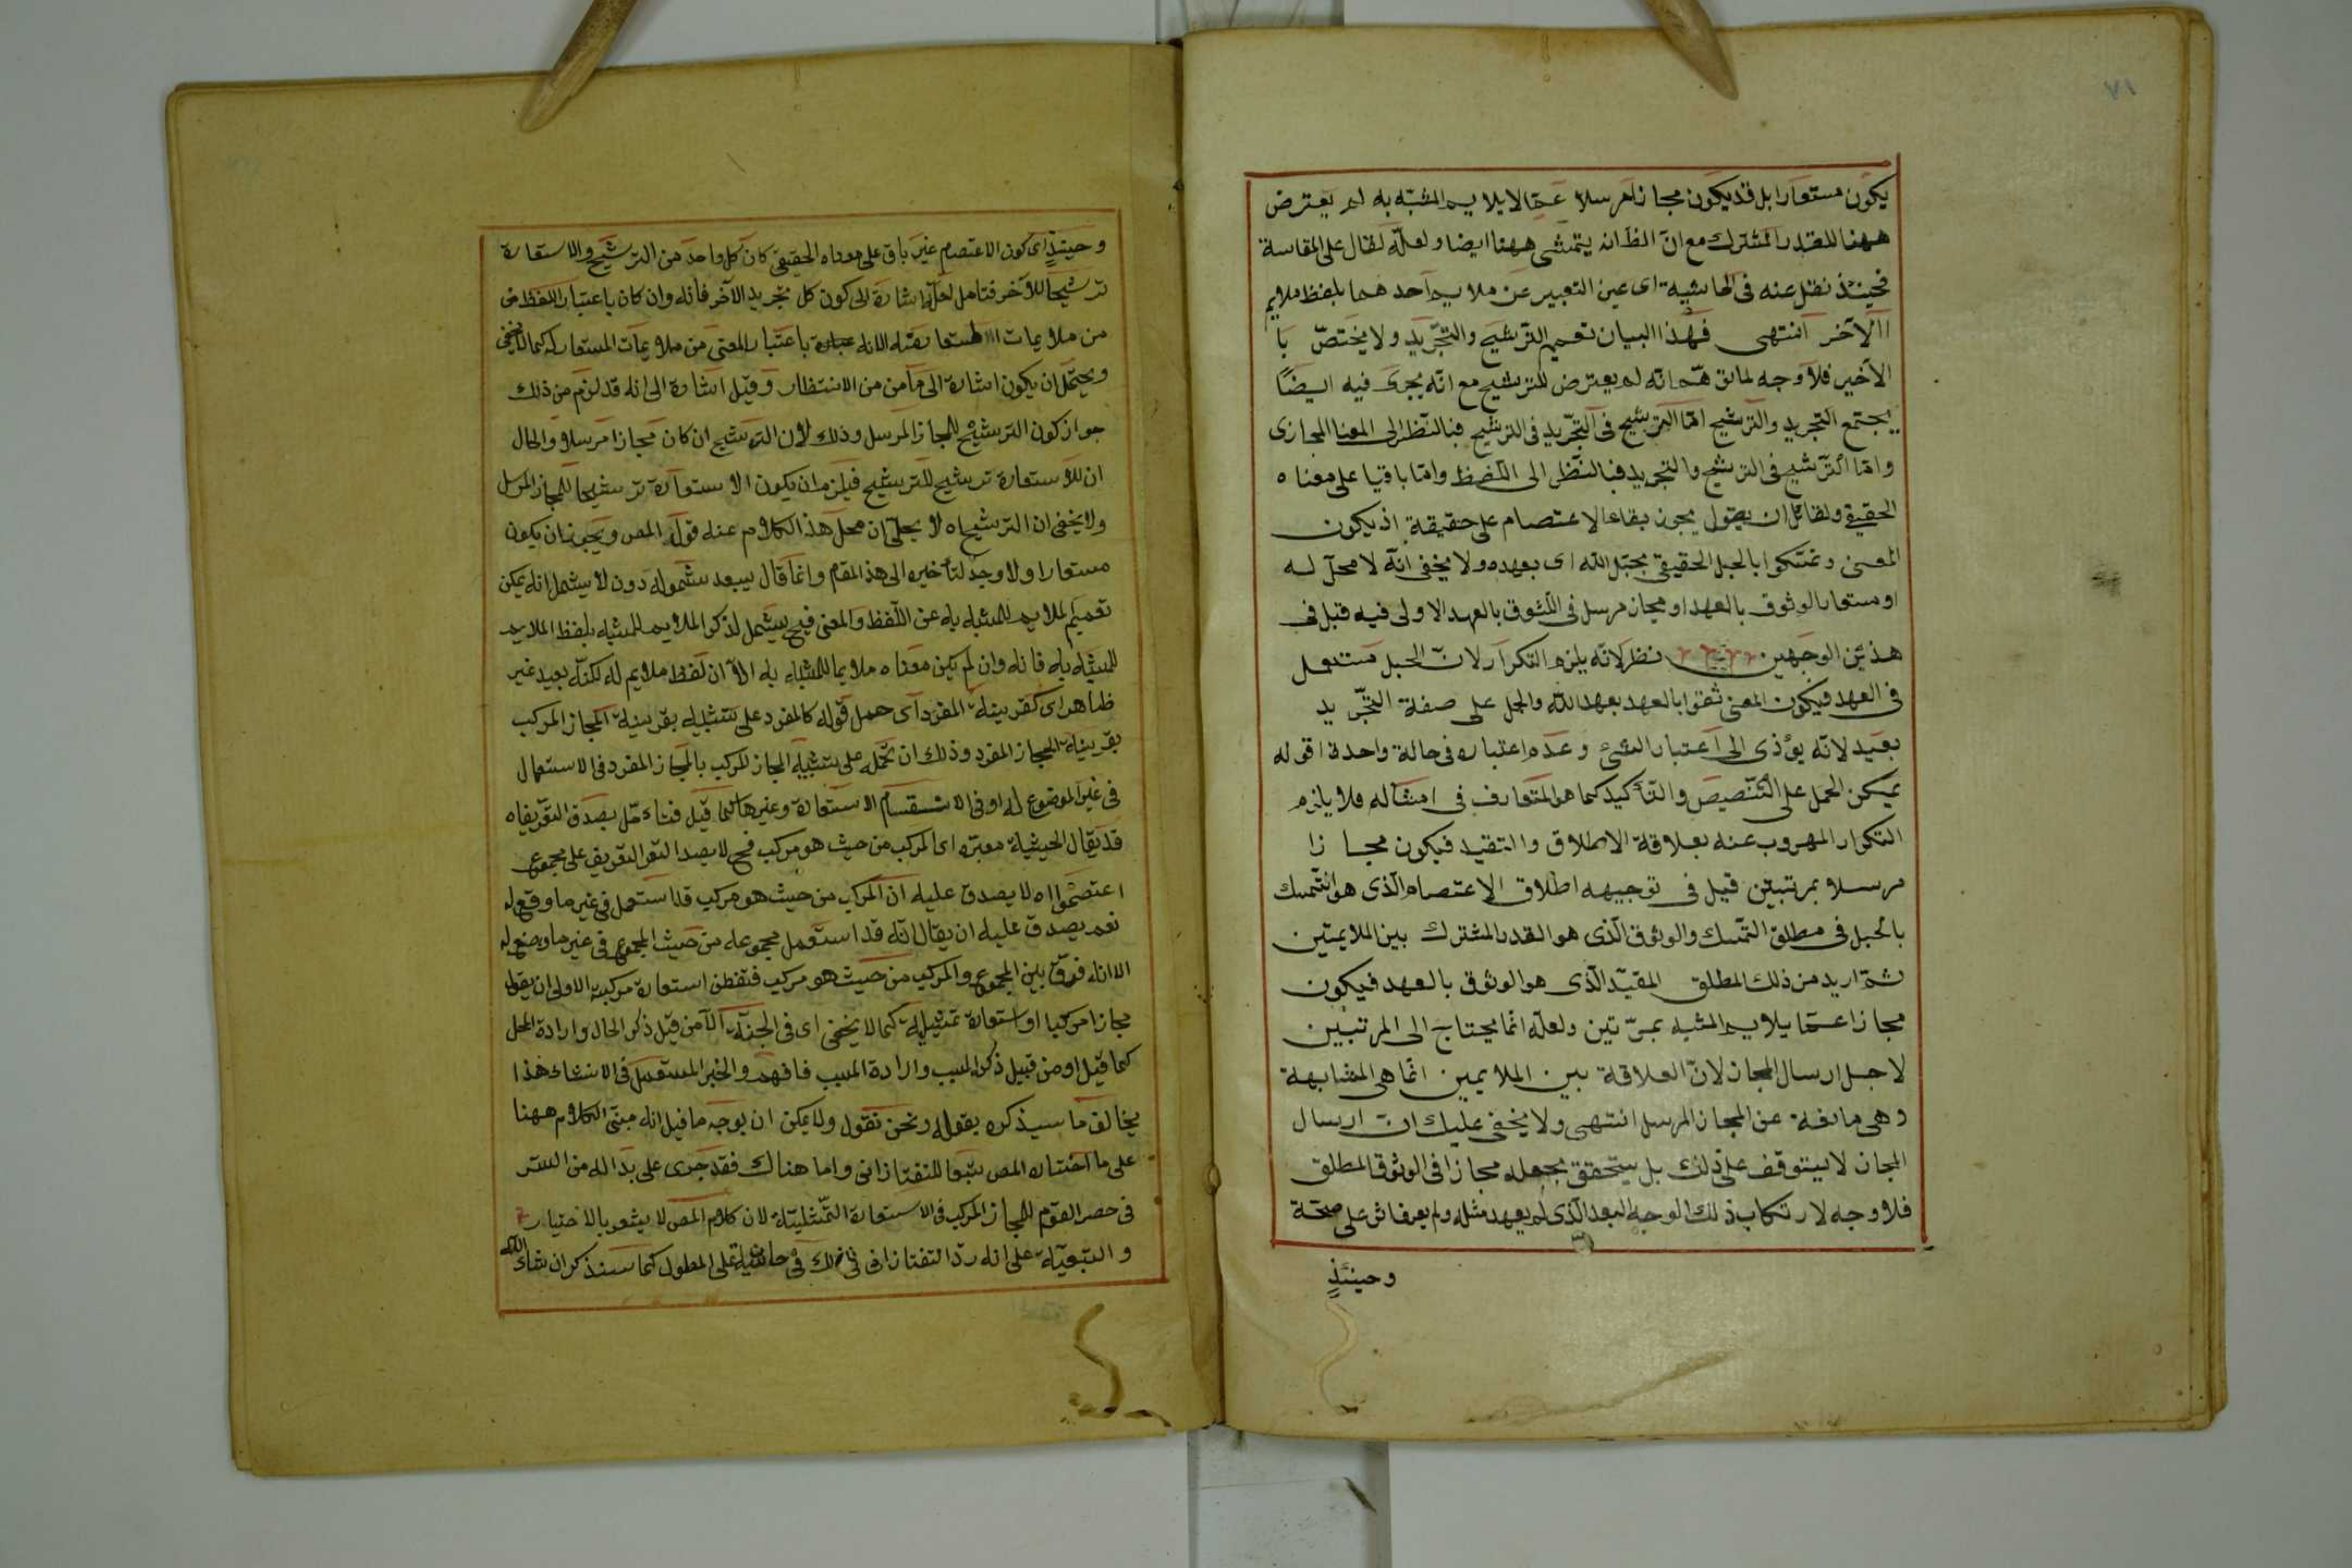 ١٧
يكون مستعارا بل قد يكون مجازا مرسلا عمّا لا يلايم المشبّه به لم يعترض
ههنا للقدر المشترك مع انّ الظ انه يتمشى ههنا ايضا ولعلّه لقال على المقاسة
فحينئذ نقل عنه فى الحاشية اى عين التعبير عن ملايم آحد هما بلفظ ملايم
الآخر انتهى فهذا البيان تعميم الترشيح والتجّريد ولا يختصّ با
الأخير فلا وجه لما انه لم يعترض للترشيح مع انّه يجرى فيه ايضًا
يجتمع التجريد والترشيح امّا الترشيح فى التجّريد فى الترشيح فبالنّظر الى المعنا المجازى
وامّا الترشيح فى الترشيح والتجريد فبالنّظر الى اللفظ وامّا باقيا على معناه
الحقيقي ولقائل ان يقول يجوز بقاء الاعتصام على حقيقة اذ يكون
المعنى وتمسّكوا بالحبل الحقيقي بحبل الله اى بعهده ولا يخفى انّه لا محلّ له
او مستعار الوثوق بالعهد او مجاز مرسل فى الوثوق بالعهد الاولى فيه قيل فى
هذين الوجهين نظر لانّه يلزم التكرار لانّ الحبل مستعمل
فى العهد فيكون المعنى ثقوا بالعهد بعهد الله والحمل على صفة التجّريد
بعيد لانّه يؤذى الى اعتبار الشئ وعدم اعتباره فى حالة واحدة اقوله
يمكن الحمل على التّنصيص والتأكيد كما هو المتعارف فى امثاله فلا يلزم
التكرار المهروب عنه بعلاقة الاطلاق والتقيد فيكون مجازا
مرسلا بمرتبتين قيل فى توجيهه اطلاق الاعتصام الّذى هو التّمسك
بالحبل فى مطلق التمّسك والوثوق الّذى هو القدر المشترك بين الملايمتين
ثمّ اريد من ذلك المطلق المقيّد الّذى هو الوثوق بالعهد فيكون
مجازا عمّا يلايم المشبه بمرّتين ولعلّه انّما يحتاج الى المرتبتين
لاجل ارسال المجاز لانّ العلاقة بين الملايمين انما هى المشابهة
وهى مانعة عن المجاز المرسل انتهى ولا يخفى عليك انّ ارسال
المجاز لا يتوقف على ذلك بل يتحقق بجعله مجازا فى الوثوق المطلق
فلا وجه لارتكاب ذلك الوجه البعد الّذى لم يعهد مثله ولم يعرفاش على صحّة
وحينئذٍ
وحينئذٍ اى كون الاعتصام غير باق على معناه الحقيقي كان كل واحد من الترشيح والاستعارة
ترشيحا للآخر فتامل لعلّه اشارة الى كون كل تجريد الآخر فانه وان كان باعتبار اللفظ من
من ملايمات المستعار منه الا انه باعتبار المعنى من ملايمات المستعار له كما لا يخفى
ويحتمل ان يكون اشارة الى ما من من الانتظار وقيل اشارة الى انه قد لزم من ذلك
جواز كون الترشيح للمجاز المرسل وذلك لان الترشيح ان كان مجازا مرسلا والحال
ان للاستعارة ترشيح للترشيح فيلزم ان يكون الاستعارة ترشيحا للمجاز المرسل
ولا يخفى ان الترشيح اه لا يجلّى ان محلّ هذا الكلام عند قول المص ويجوز ان يكون
مستعارا ولا وجه لتأخيره الى هذا المقام وانما قال يبعد شموله دون لا يشمل انه يمكن
تعميم الملايم للمشبه به عن اللّفظ والمعنى فح يشمل لذكر الملايم للمشبه بلفظ الملايم
للمشبه به فانه وان لم يكن معناه ملايما للمشبه به الّا ان لفظه ملايم له لكنّه بعيد غير
ظاهر اى كقرينة المفرد اى حمل قوله كالمفرد على تشبيه بقرينة المجاز المركب
بقرينة المجاز المفرد وذلك ان تحمله على تشبيه المجاز المركب بالمجاز المفرد فى الاستعمال
فى غير الموضوع له او فى الانقسام الاستعارة وغيرها كما قيل فتأمّل يصدق التعّريف اه
قد يقال الحيثية معتبره اى المركب من حيث هو مركب فح لا يصدق التعريف على مجموع
اعتصموا اه لا يصدق عليه ان المركب من حيث هو مركب قد استعمل فى غير ما وضع له
نعم يصدق عليه ان يقال انّه قد استعمل مجموعه من حيث المجموع فى غير ما وضع له
الا انه فرّق بين المجموع والمركب من حيث هو مركب فتفطن استعارة مركبة الاولى ان يقول
مجازا مركبا او استعارة تمثيلية كما لا يخفى اى فى الجنة الآمن قبل ذكر الحال وارادة المحل
كما قيل او من قبيل ذكر السبب وارادة المسبب فافهم والخبر المستعمل فى الانشاء هذا
يخالف ما سيذكره بقوله ونحن نقول ولا يمكن ان يوجه ما فيل انه مبنى الكلام ههنا
على ما اختاره المص تبعا للتفتازانى واما هناك فقد جرى على بدا له من الستر
فى حصر القوم للمجاز المركب فى الاستعارة التمّثيلية لان كلام المص لا يشعر بالاختيار
والتبعيّة على انه ردّ التفتازانى فى ذلك فى حاشية على المطول كما سنذكر ان شاء الله